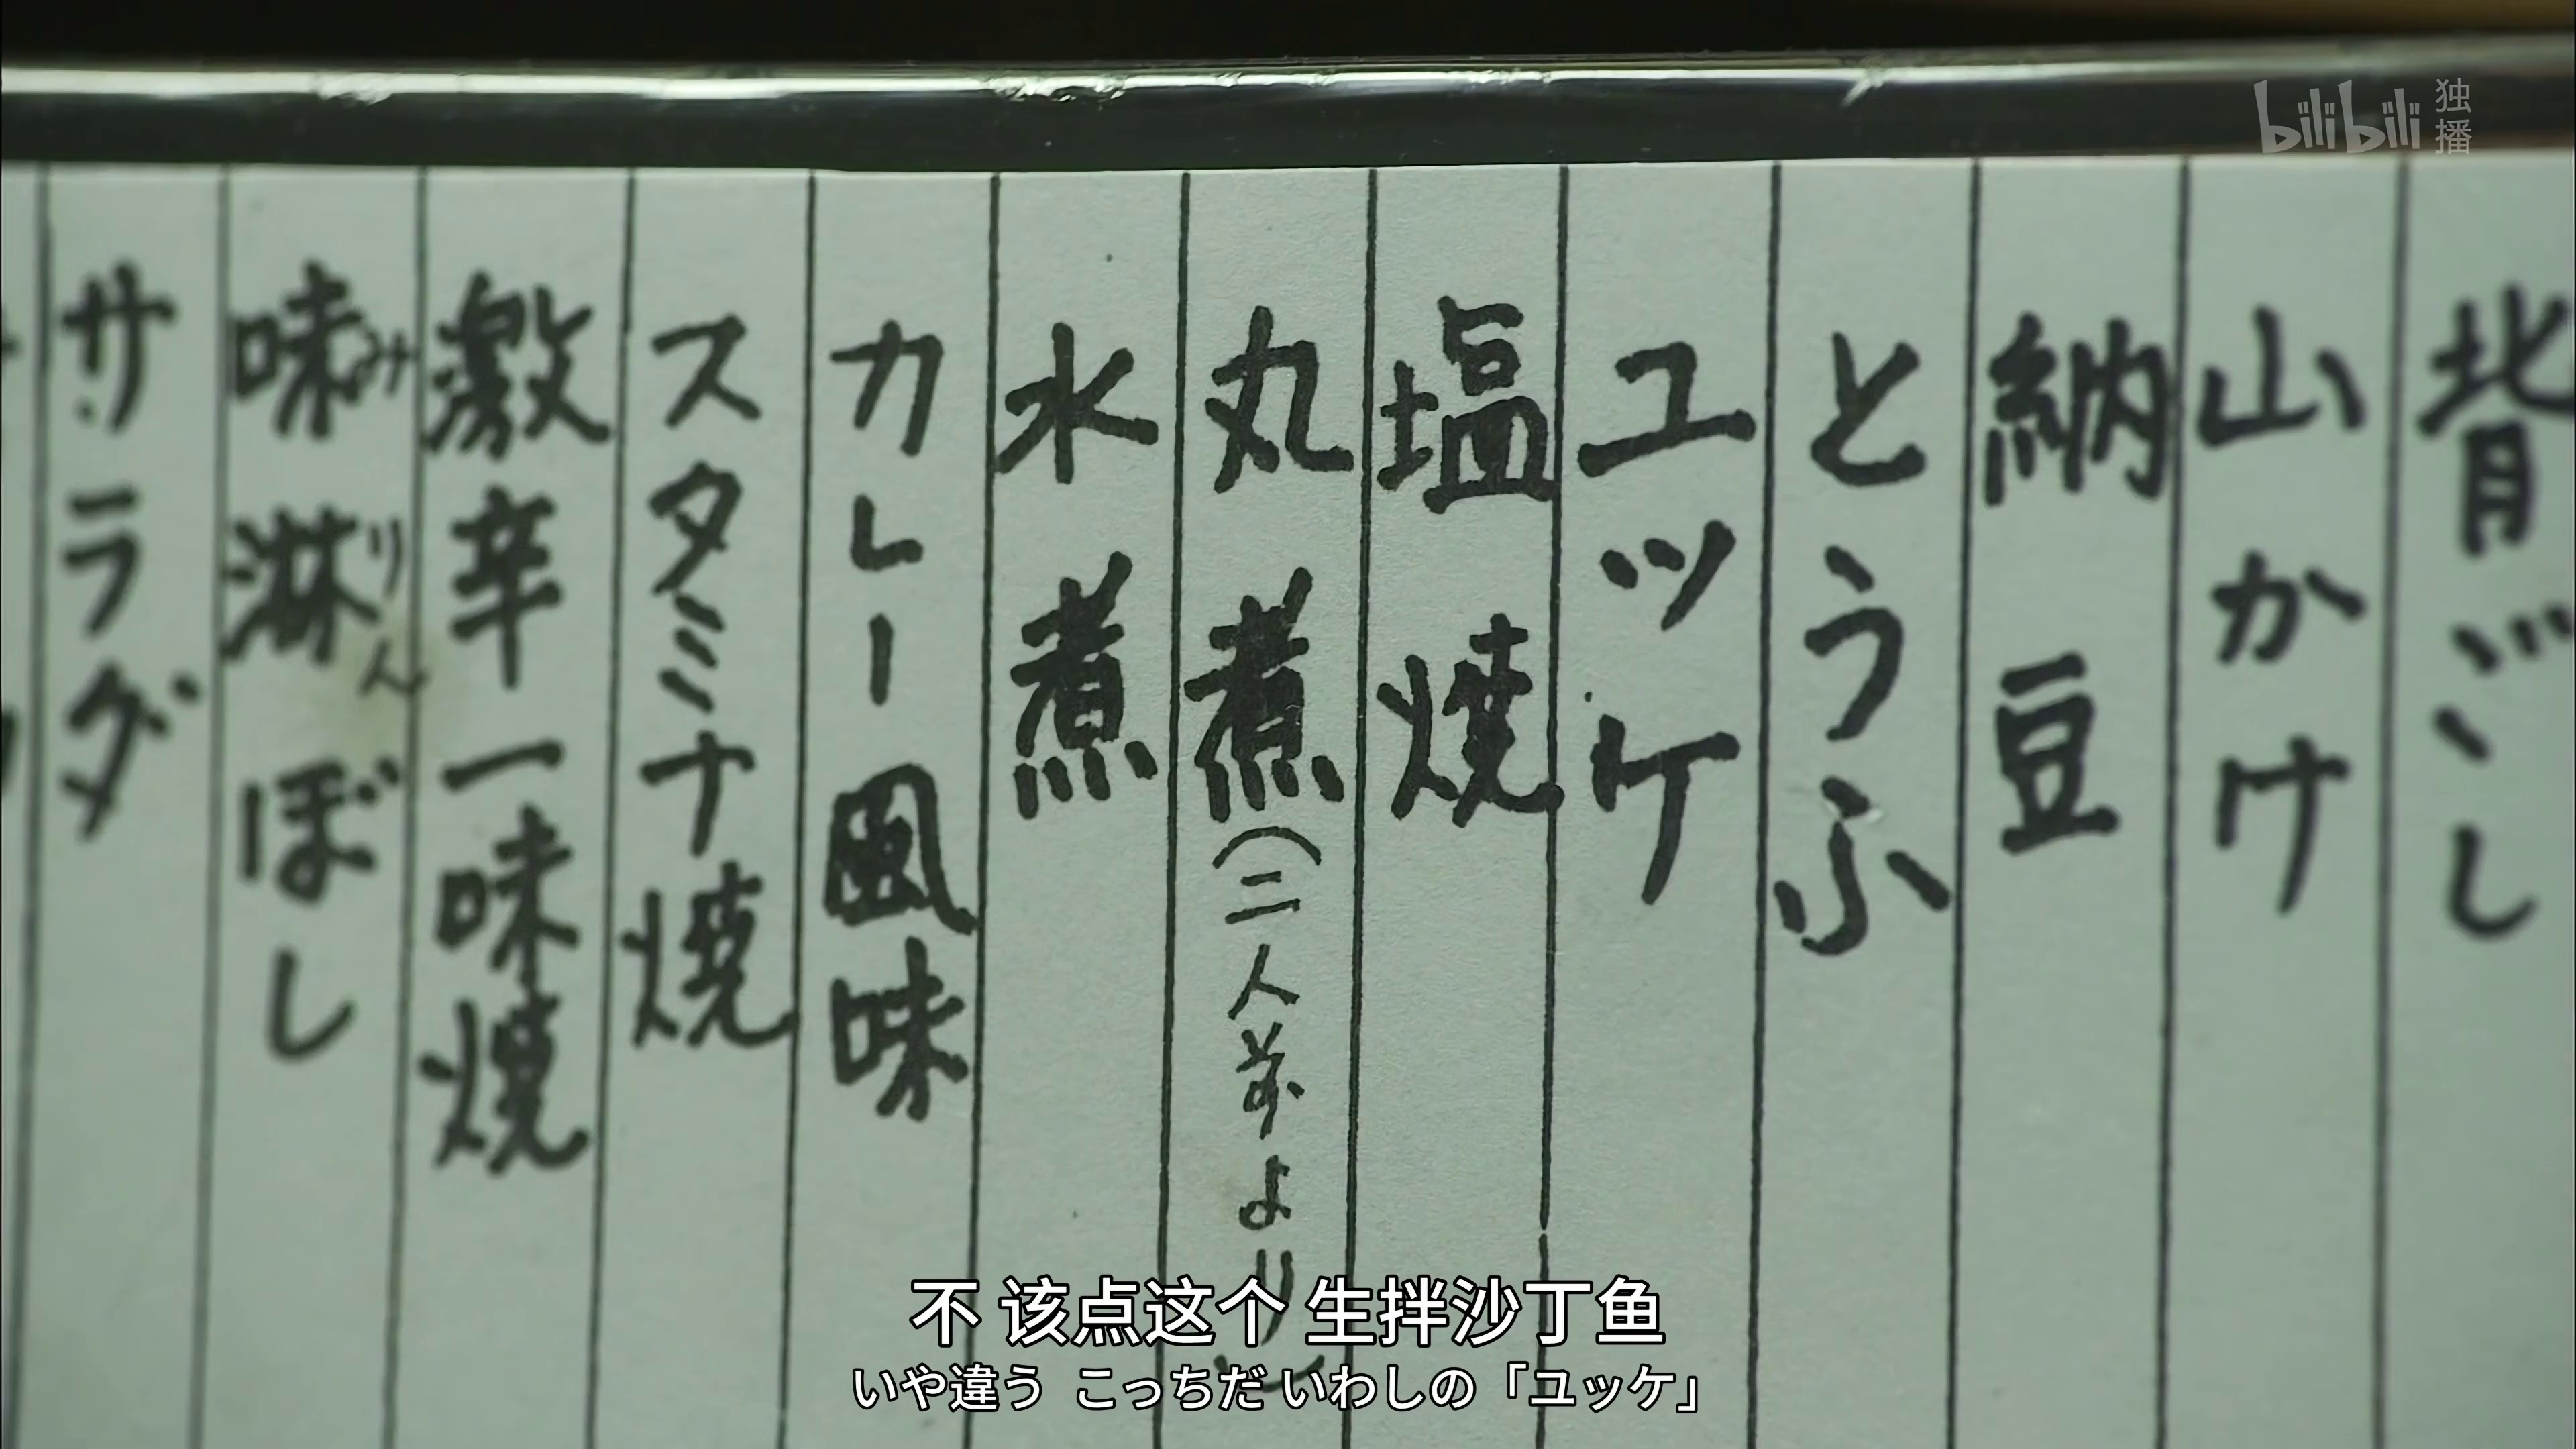 bilibili 独播
背ごし
山かけ
納豆
とうふ
ユッケ
塩焼
丸煮(二人前より)
水煮
カレー風味
スタミナ焼
激辛一味焼
味淋ぼし
みりん
サラダ
不 该点这个 生拌沙丁鱼
いや違う こっちだ いわしの「ユッケ」